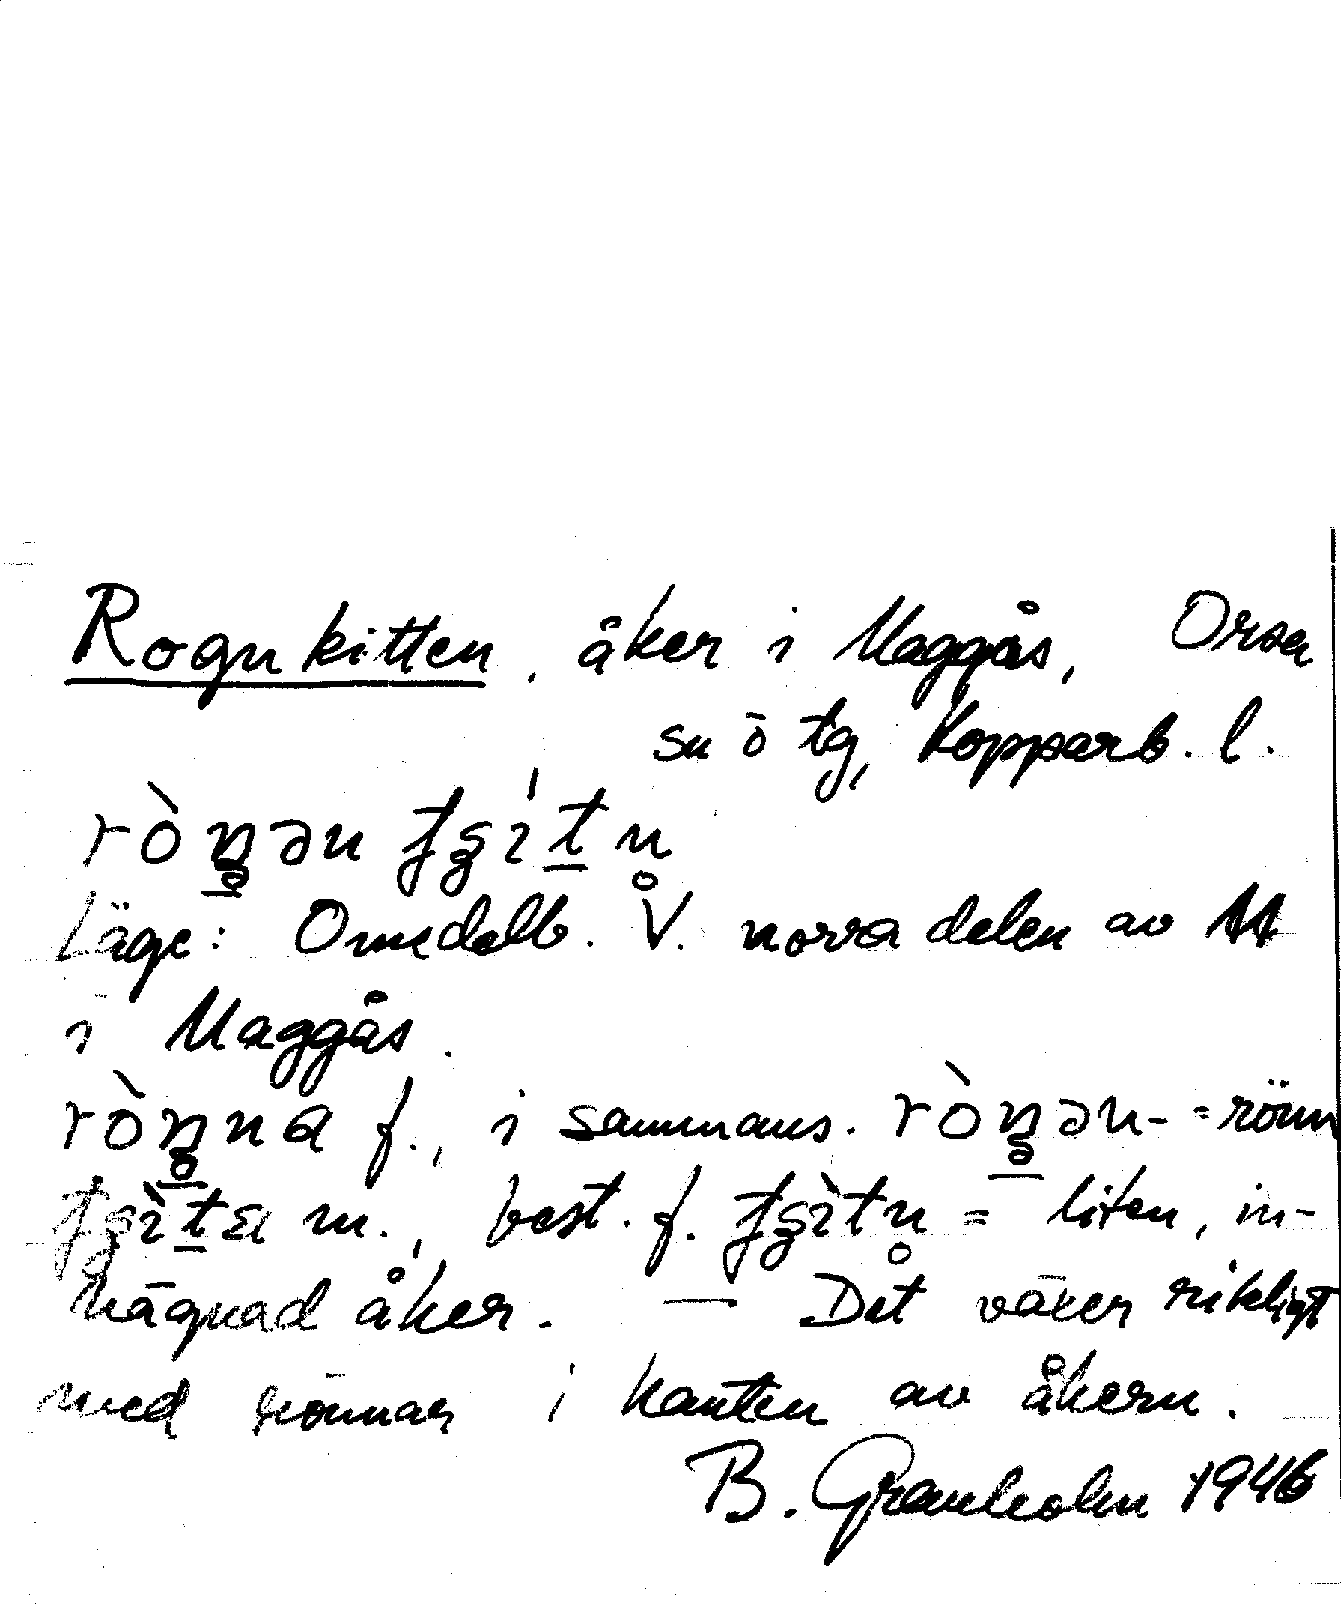 Rognkitten, åker i Maggås, Orsa
sn ö tg, Kopparb. l.
Läge: Omedelb. V. norra delen av
i Maggås.
f., i sammans. = rönn
m., best. f. = liten, in-
hägnad åker. — Det växer rikligt
med rönnar i kanten av åkern.
B. Granholm 1946